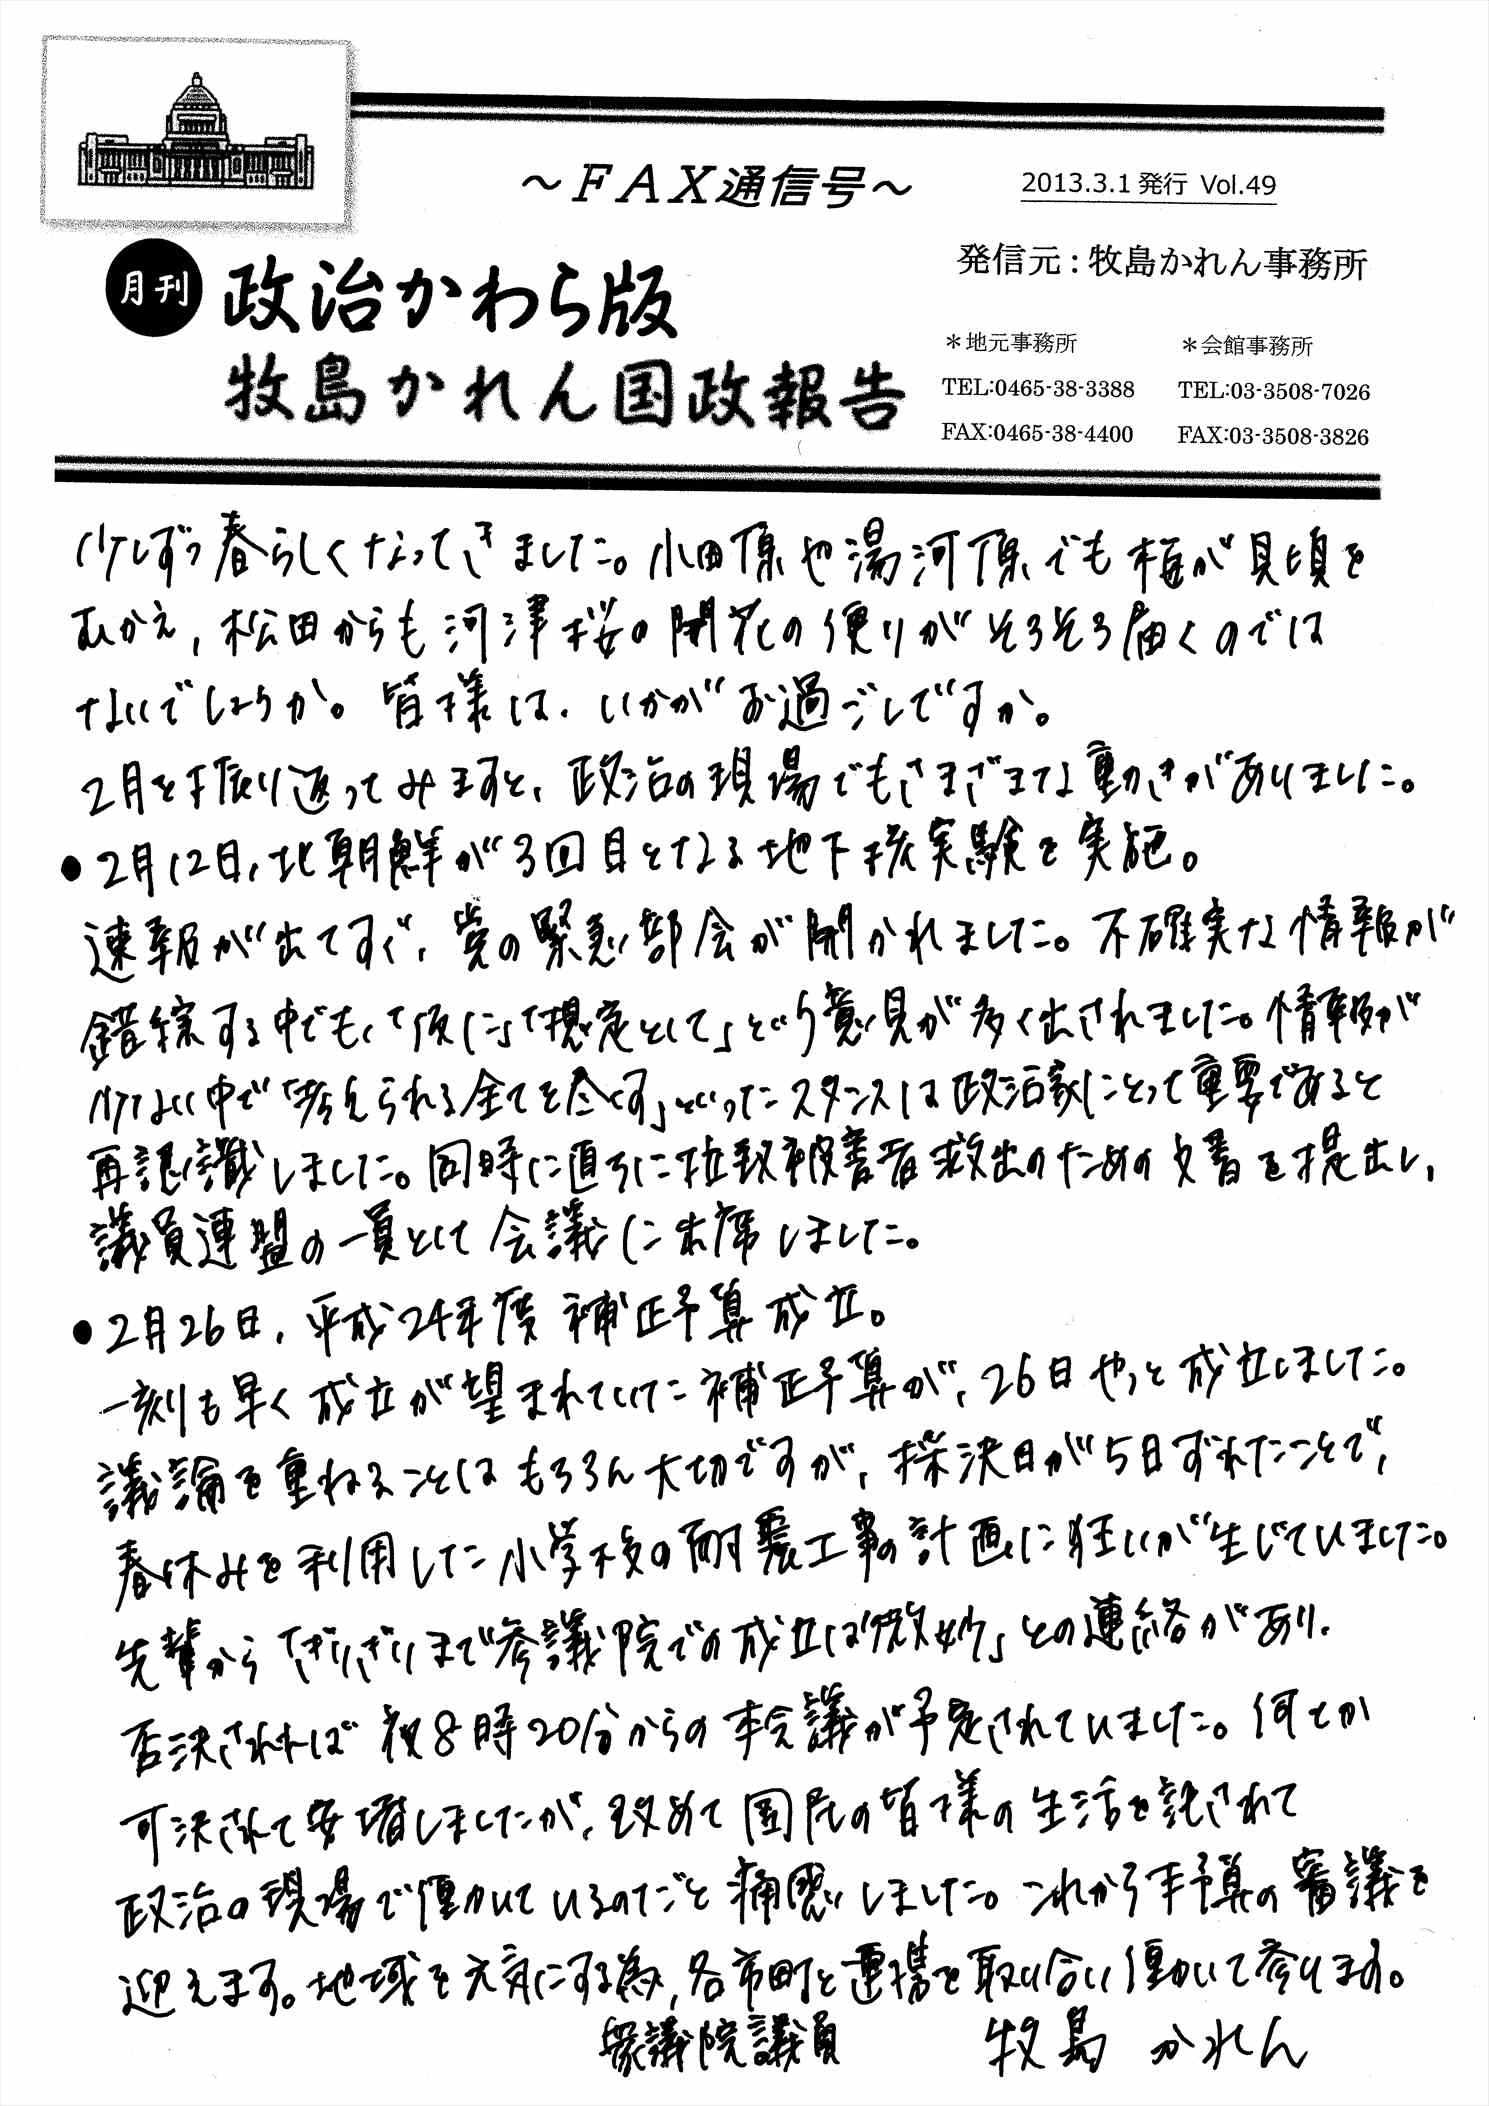 ～ＦＡＸ通信号～
2013.3.1発行 Vol.49
月刊 政治かわら版
牧島かれん国政報告
発信元：牧島かれん事務所
＊地元事務所 ＊会館事務所
TEL:0465-38-3388 TEL:03-3508-7026
FAX:0465-38-4400 FAX:03-3508-3826
少しずつ春らしくなってきました。小田原や湯河原でも梅が見頃を
むかえ、松田からも河津桜の開花の便りがそろそろ届くのでは
ないでしょうか。皆様は、いかがお過ごしですか。
2月を振り返ってみますと、政治の現場でもさまざまな動きがありました。
●2月12日、北朝鮮が3回目となる地下核実験を実施。
速報が出てすぐ、党の緊急部会が開かれました。不確実な情報が
錯綜する中でも、「仮に」「想定として」という意見が多く出されました。情報が
少ない中で「考えられる全てを尽くす」といったスタンスは政治家にとって重要であると
再認識しました。同時に直ちに拉致被害者救出のための文書を提出し、
議員連盟の一員として会議に出席しました。
●2月26日、平成24年度補正予算成立。
一刻も早く成立が望まれていた補正予算が、26日やっと成立しました。
議論を重ねることはもちろん大切ですが、採決日が5日ずれたことで、
春休みを利用した小学校の耐震工事の計画に狂いが生じていました。
先輩から「ぎりぎりまで参議院での成立は微妙」との連絡があり、
否決されれば夜8時20分からの本会議が予定されていました。何とか
可決されて安堵しましたが、改めて国民の皆様の生活を託されて
政治の現場で働かいているのだと痛感しました。これから本予算の審議を
迎えます。地域を元気にする為、各市町と連携を取り合い働かいて参ります。
衆議院議員 牧島かれん